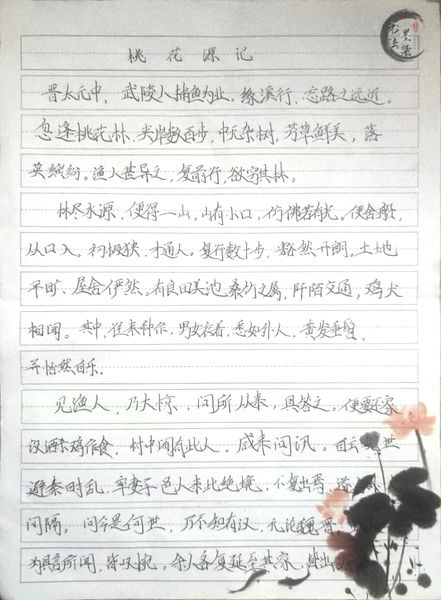 书法
墨集
桃花源记
晋太元中，武陵人捕鱼为业。缘溪行，忘路之远近。
忽逢桃花林，夹岸数百步，中无杂树，芳草鲜美，落
英缤纷。渔人甚异之，复前行，欲穷其林。
林尽水源，便得一山，山有小口，仿佛若有光。便舍船，
从口入。初极狭，才通人。复行数十步，豁然开朗。土地
平旷，屋舍俨然。有良田美池桑竹之属，阡陌交通，鸡犬
相闻。其中，往来种作，男女衣着，悉如外人，黄发垂髫，
并怡然自乐。
见渔人，乃大惊，问所从来，具答之。便要还家
设酒杀鸡作食，村中闻有此人，咸来问讯。自云 世
避秦时乱，率妻子邑人来此绝境，不复出焉，遂
间隔。问今是何世，乃不知有汉，无论魏晋
为具言所闻，皆叹惋。余人各复延至其家，皆出